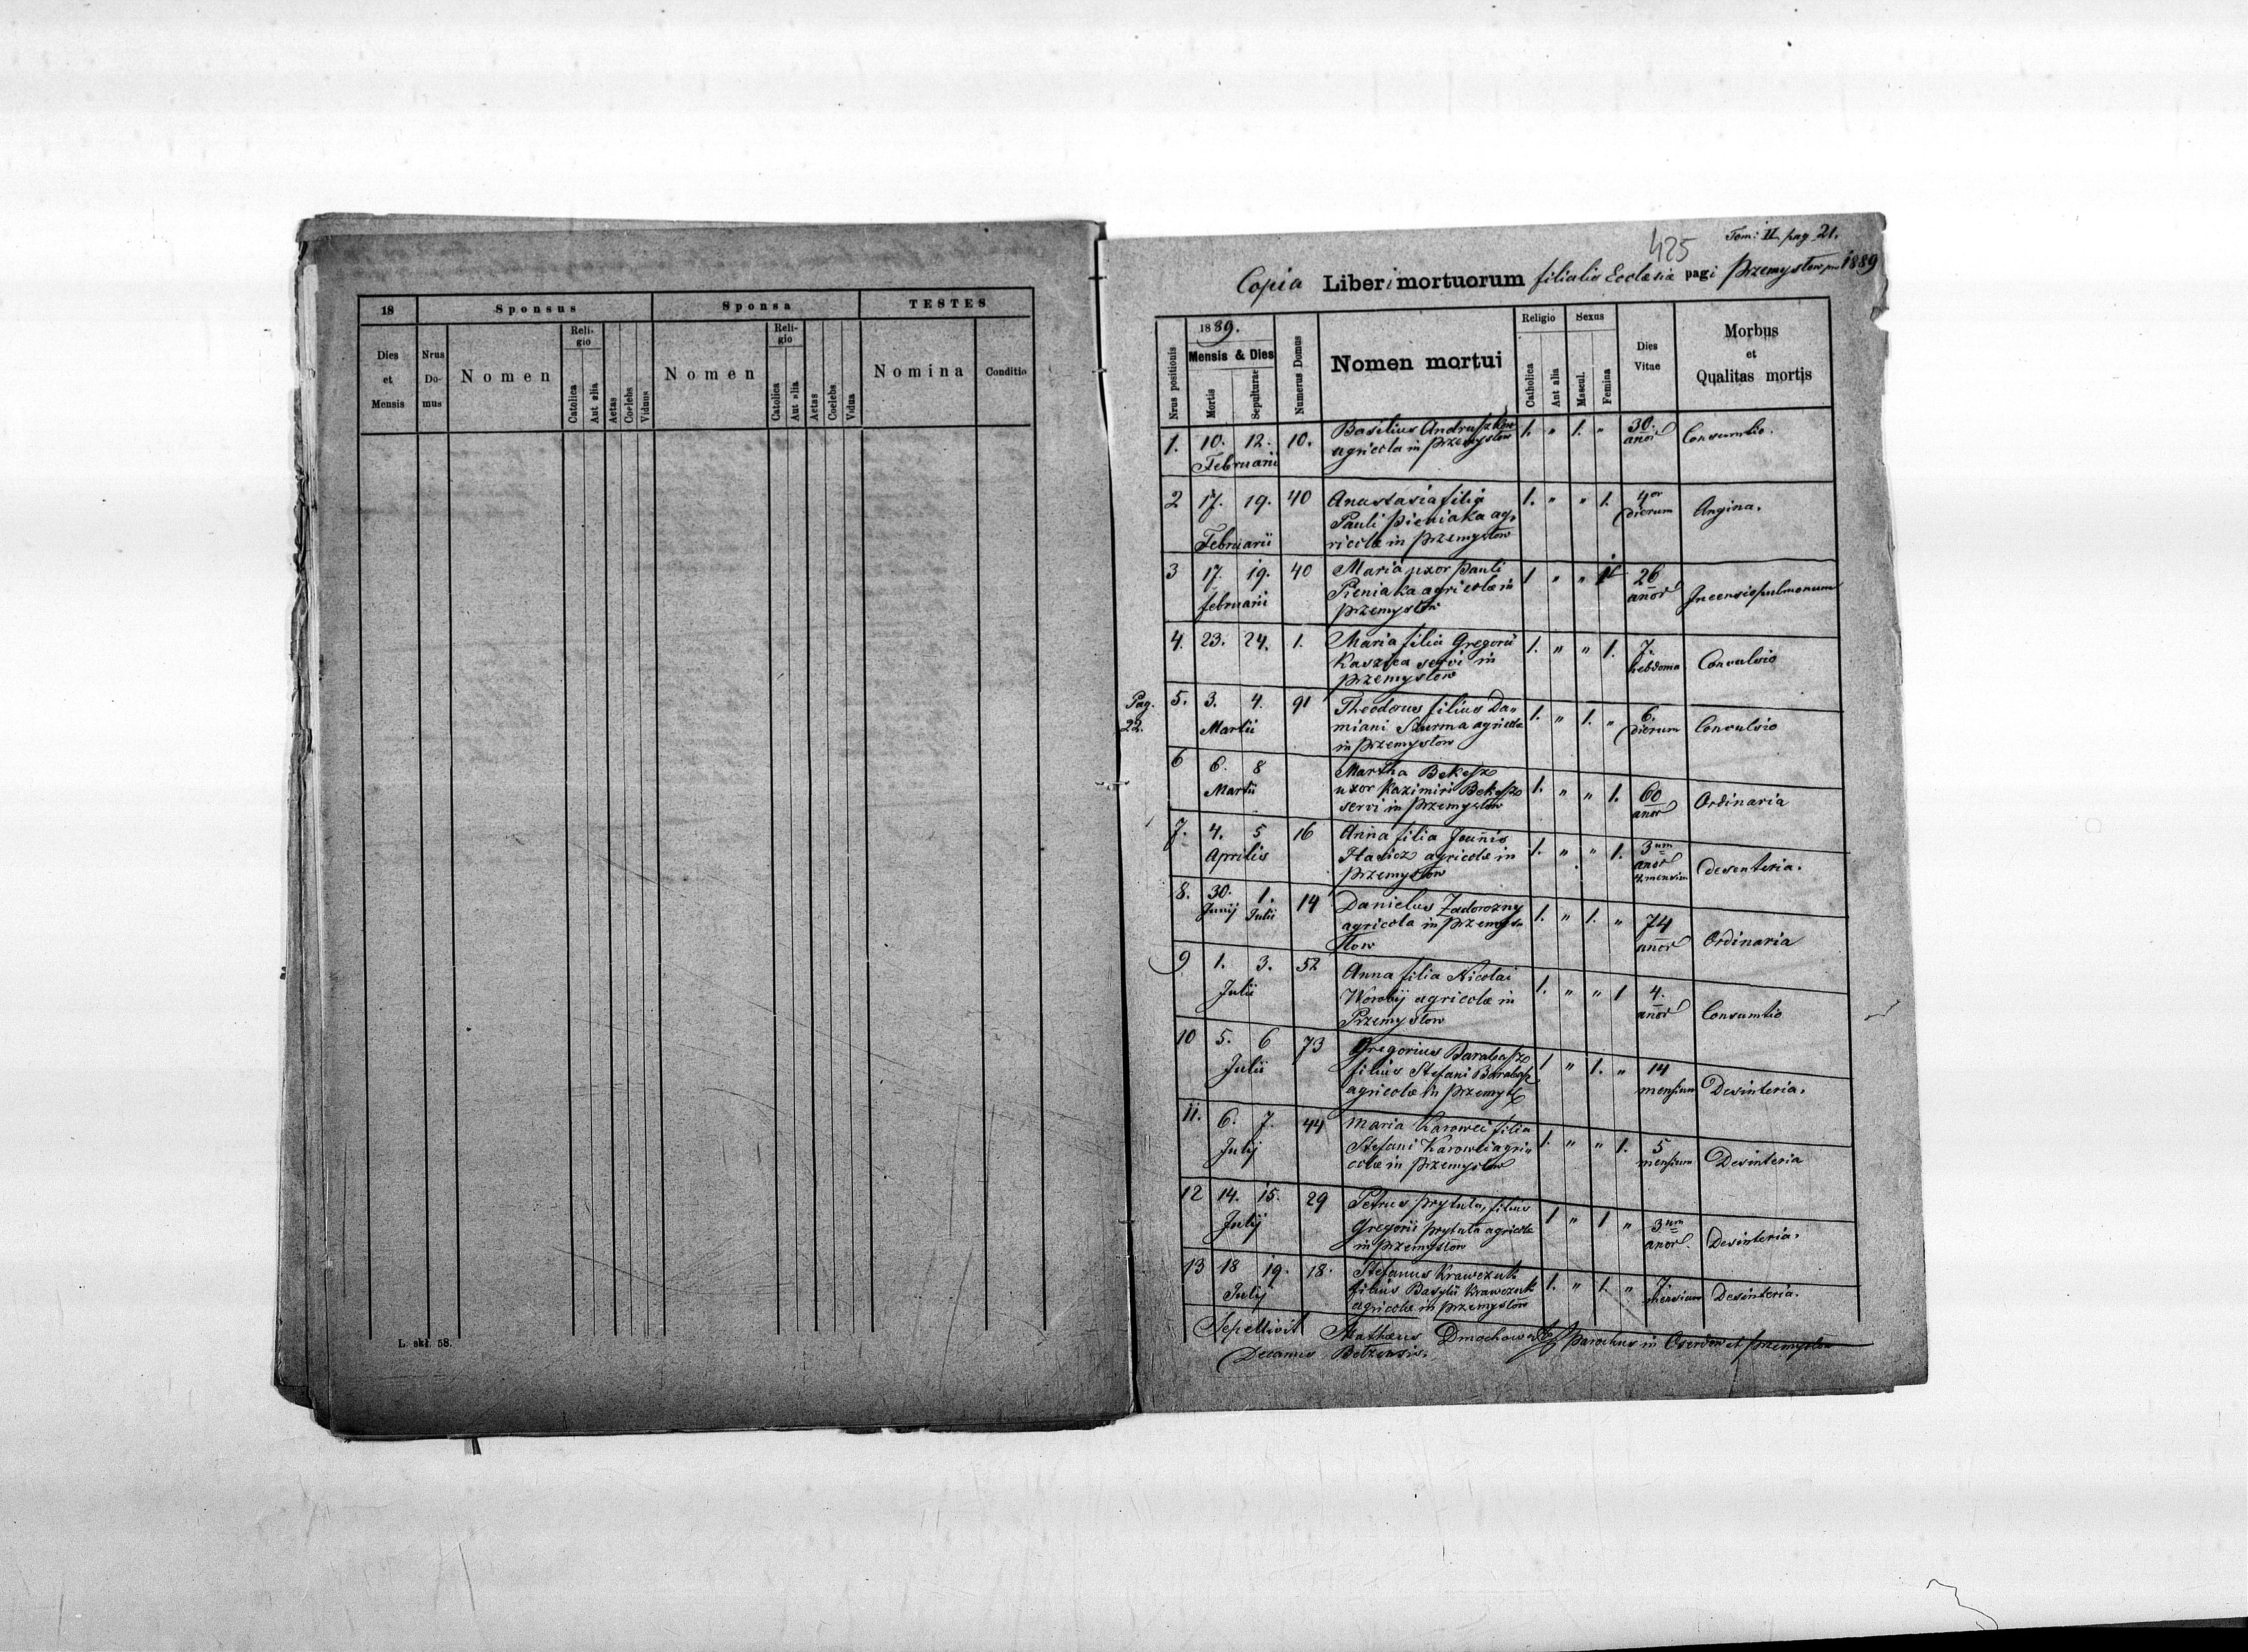 18 Sponsus Sponsa TESTES
Dies et Mensis Nrus Domus Nomen Religio Catolica Aut alia Aetas Coelebs Viduus Nomen Religio Catolica Aut alia Aetas Coelebs Vidua Nomina Conditio
L. skł. 58.
425 Tom: II pag 21.
Copia Liberi mortuorum filialis Ecclesiæ pagi Przemysłow pro 1889
Nrus positionis 1889. Mensis & Dies Mortis Sepulturae Numerus Domus Nomen mortui Religio Catholica Aut alia Sexus Mascul. Femina Dies Vitae Morbus et Qualitas mortis
1. 10. 12. 10. Basilius Andruszków 1. " 1. " 30. Consumtio.
Februarii agricola in Przemysłow anor
2 17. 19. 40 Anastasia filia 1. " " 1. 4or Angina.
Pauli Pieniaka ag, dierum
Februarii ricolæ in Przemysłow
3 17. 19. 40 Maria uxor Pauli 1 " " 1 26
februarii Pieniaka agricolæ in anor Incensio pulmonum
Przemysłow
4. 23. 24. 1. Maria filia Gregorii 1. " " 1. 7. Convulsio
servi in hebdoma
Przemysłow
Pag. 22.
5. 3. 4. 91 Theodorus filius Da, 1. " 1. " 6. Convulsio
Martii miani Szurma agricolæ dierum
in Przemysłow
6 6. 8 Martha Bekesz
Martii uxor Kazimiri Bekesz 1. " " 1. 60 Ordinaria
servi in Przemysłow anor
7. 4. 5 16 Anna filia Joannis 1. " " 1. 3um
Aprilis agricolæ in anor desenteria.
Przemysłow 4. mensium
8. 30. 1. 14 Danielus Zadorozny 1. " 1. " 74 Ordinaria
Junij Julii agricola in Przemys, anor
słow
9 1. 3. 52 Anna filia Nicolai 1. " " 1 4. Consumtio
Julii Worobij agricolæ in anor
Przemysłow
10 5. 6 73 Gregorius Barabasz 1 " 1. " 14
Julii filius Stefani Barabasz mensium Desinteria.
agricolæ in Przemysł
11. 6. 7. 44 Maria Karowci filia
Julij Stefani Karowci agri, 1. " " 1. 5 Desinteria
colæ in Przemysłow mensium
12 14. 15. 29 Petrus Prytuła, filius 1 " 1 " 3um
Julij Gregorii Prytuła agricolæ anor. Desinteria.
in Przemysłow
13 18 19. 18. Stefanus Krawczuk 1. " 1. " 7. Desinteria.
Julij filius Basylii Krawczuk mensium
agricolæ in Przemysłow
Sepellivit Mathæus Dmochowski parochus in Oserdow et Przemysłow
Decanus Bełzensis.